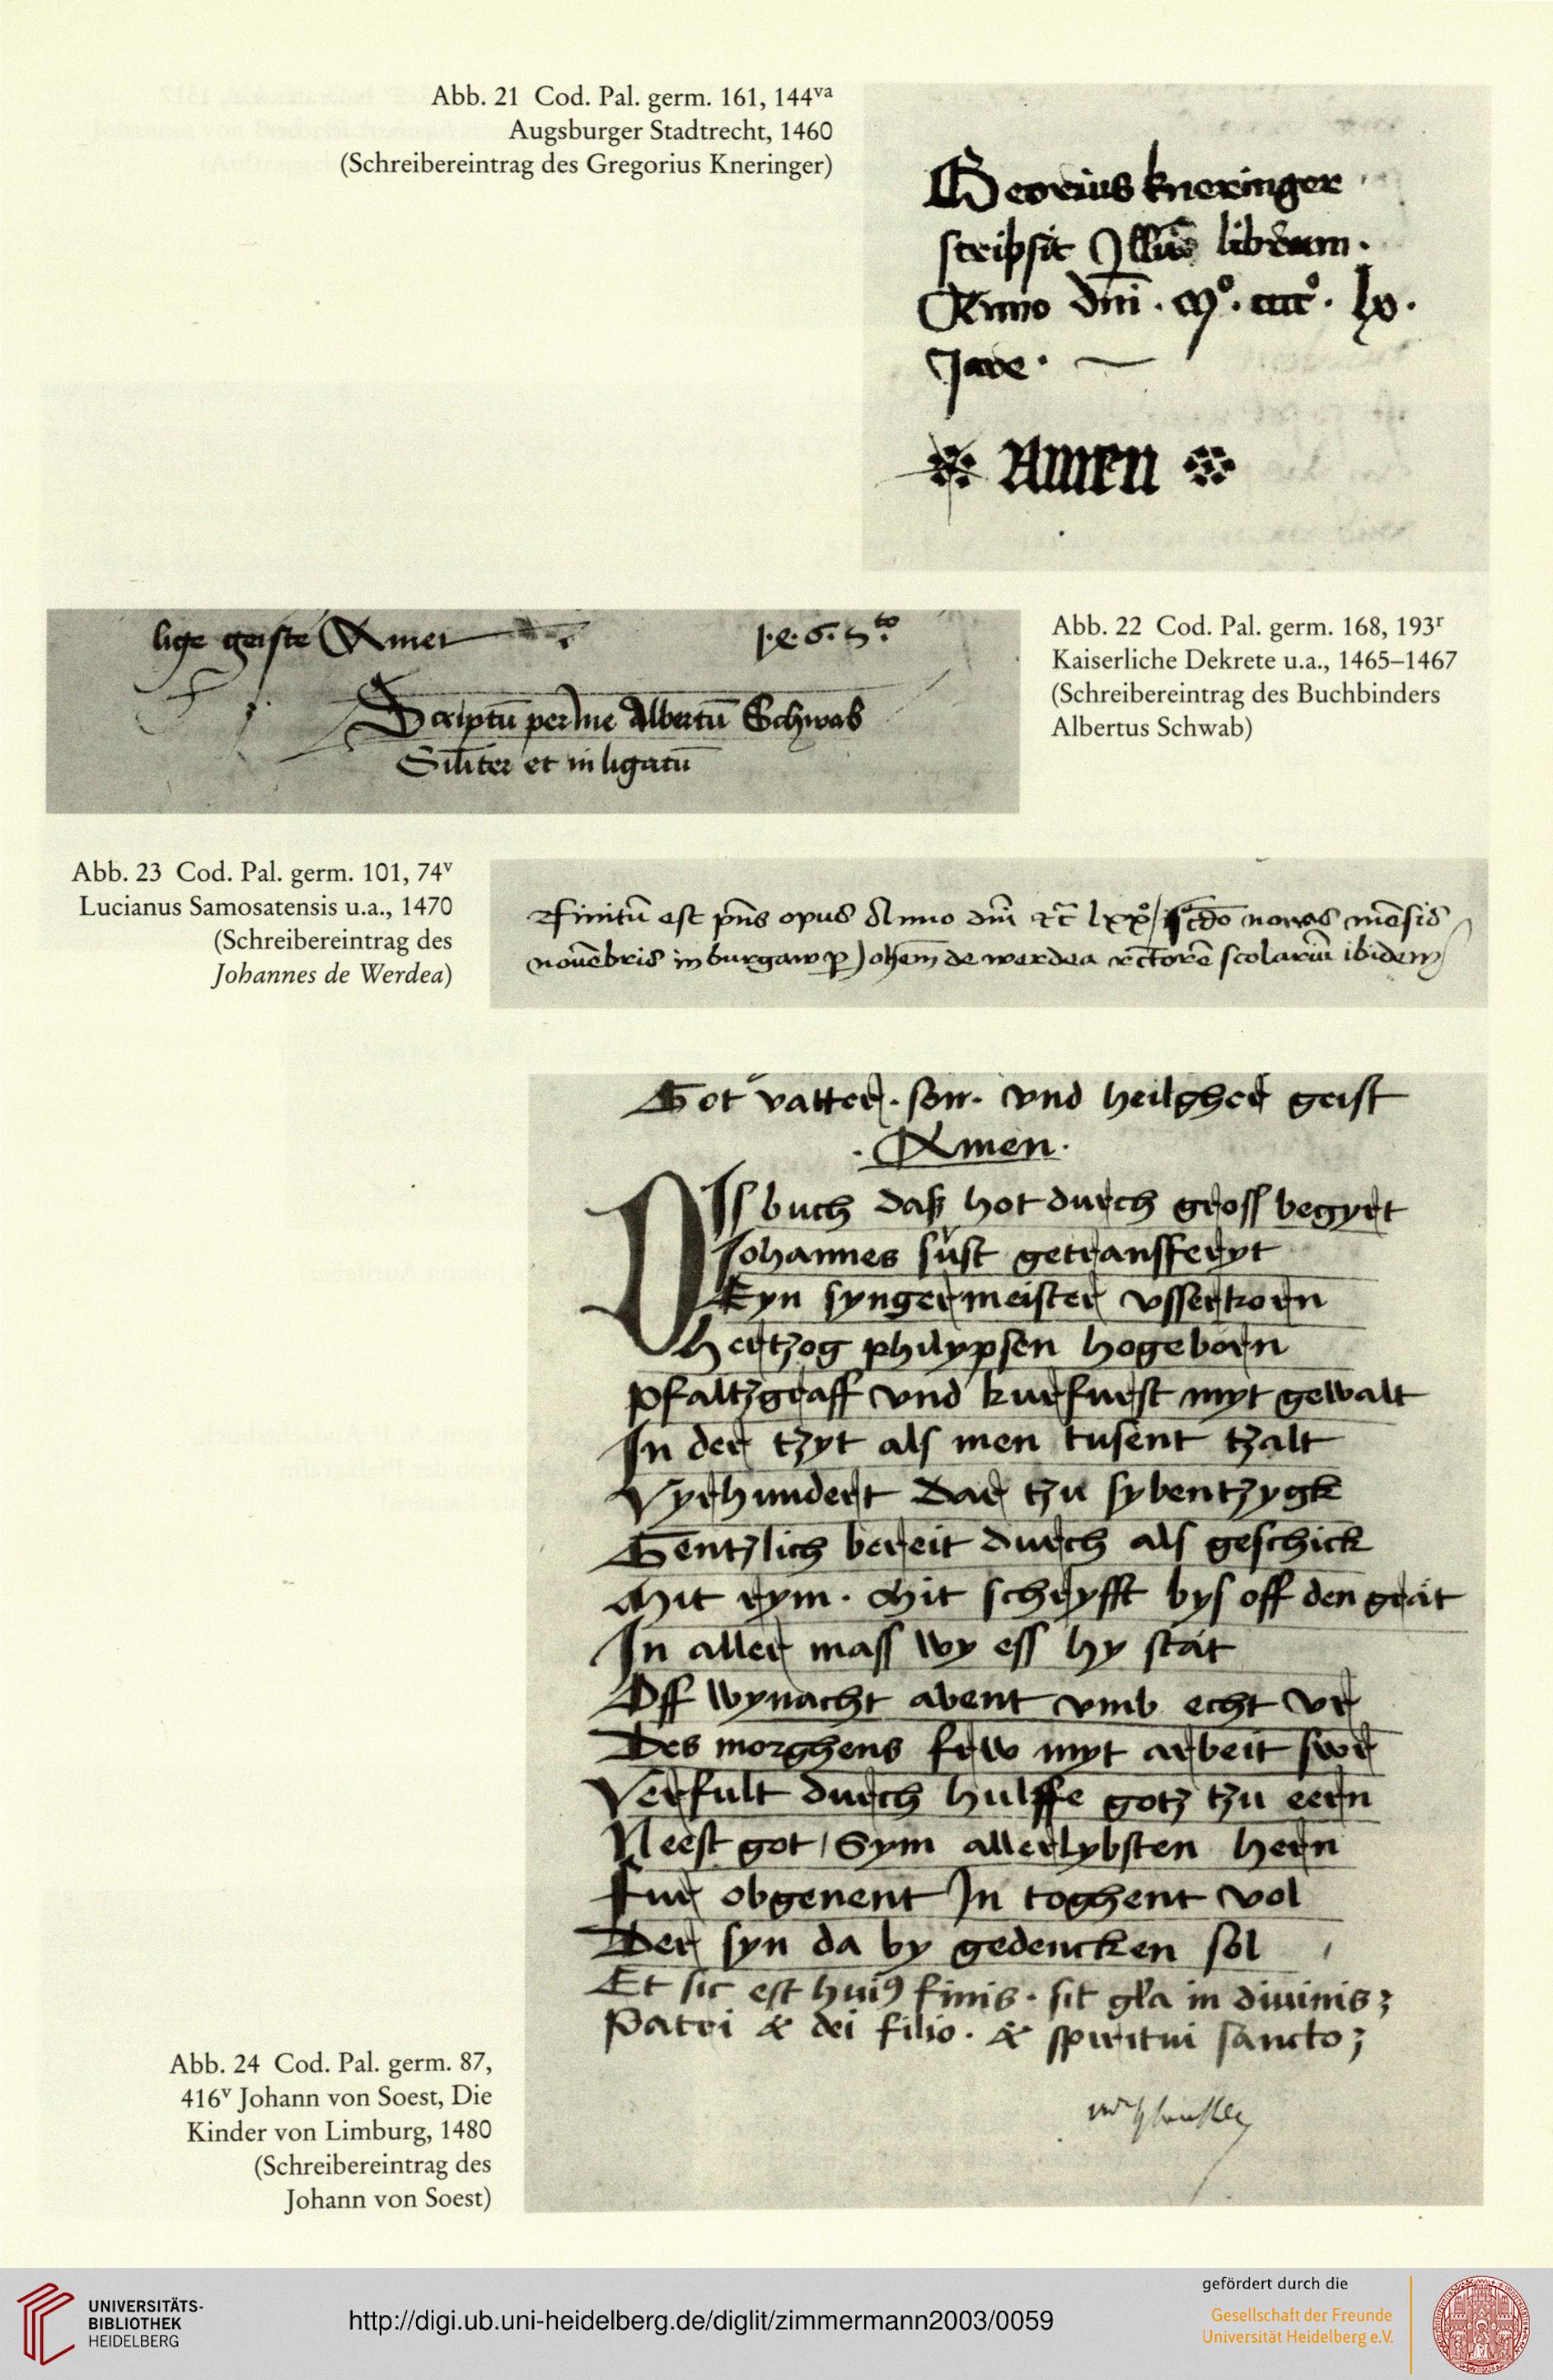 Abb. 21 Cod. Pal. germ. 161, 144va
Augsburger Stadtrecht, 1460
(Schreibereintrag des Gregorius Kneringer)
Georius kneringer
scripsit Illū librum.
Anno dm̄i . Mº. ccccº. lx.
Jare.
Amen
lige geiste Amen
1.4.6.5to
Scriptū per me Albertū Schwab
Silīter et inligatū
Abb. 22 Cod. Pal. germ. 168, 193r
Kaiserliche Dekrete u.a., 1465–1467
(Schreibereintrag des Buchbinders
Albertus Schwab)
Abb. 23 Cod. Pal. germ. 101, 74v
Lucianus Samosatensis u.a., 1470
(Schreibereintrag des
Johannes de Werdea)
Finitū est pn̄s opus Anno dn̄i lxxº nonas mēsis
novēbris in burgaw ꝑ Johem̄ de werdea rectorē scolariū ibidem
Got vatter. son. vnd heilgher geist
. Amen.
Diss buch daß hot durch gross begyrt
Johannes sust getranssferyt
Eyn syngermeister vsserkorn
hertzog philypsen hogeborn
pfaltzgraff vnd kurfurst myt gewalt
In der tzyt als men tusent tzalt
Vyrhundert dar tzu sybentzygk
Gentzlich bereit durch als geschick
Mit rym. Mit schryfft bys off den grät
In aller mass wy ess hy stät
Off wynacht abent vmb echt vr
Des morghens frw myt arbeit swr
Verfult durch hulffe gotz tzu eern
Neest got / Sym allerlybsten hern
Fur obgenent In toghent vol
Der syn da by gedencken sol
Et sic est huiꝰ finis. sit gl̄a in diuinis;
Patri & dei filio. & spiritui sancto;
Abb. 24 Cod. Pal. germ. 87,
416v Johann von Soest, Die
Kinder von Limburg, 1480
(Schreibereintrag des
Johann von Soest)
UNIVERSITÄTS-
BIBLIOTHEK
HEIDELBERG
http://digi.ub.uni-heidelberg.de/diglit/zimmermann2003/0059
gefördert durch die
Gesellschaft der Freunde
Universität Heidelberg e.V.